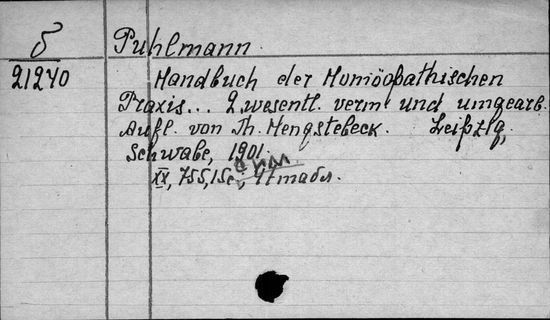 δ Puhlmann.
21240 Handbuch der Homöopathischen
Praxis... 2. wesentl. verm. und umgearb.
Aufl. von Th. Hengstebeck. Leipzig,
Schwabe, 1901.
XX, 755, 1 Se.,